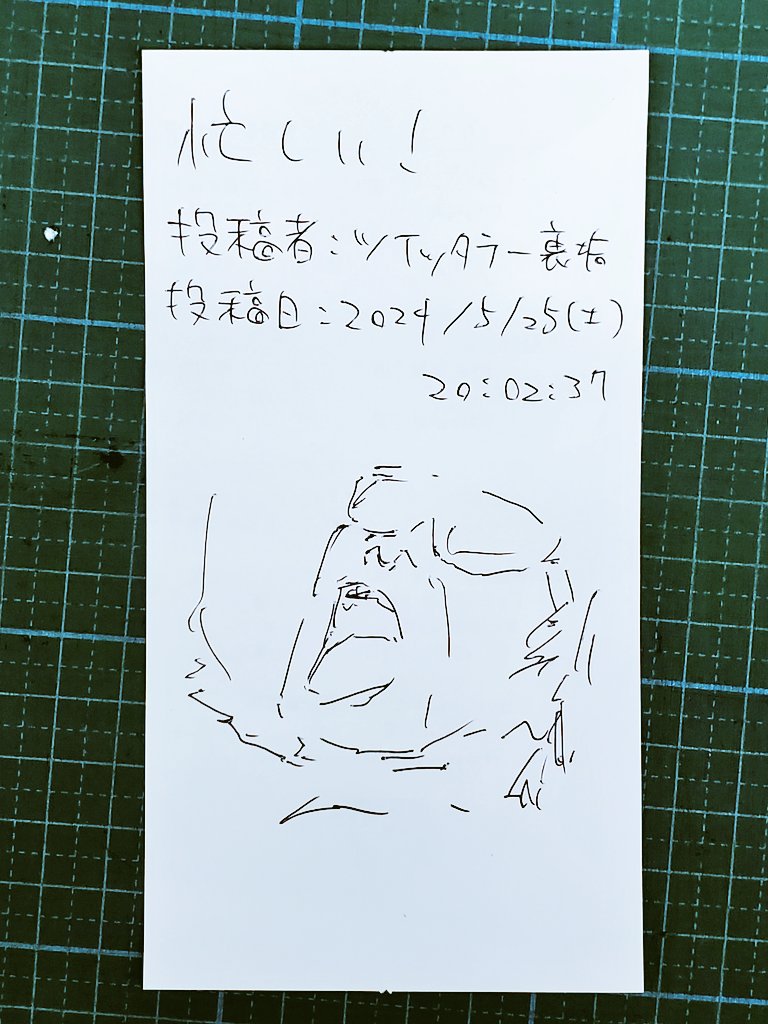 忙しい!
投稿者:ツイッタラー裏垢
投稿日:2024/5/25(土)
20:02:37